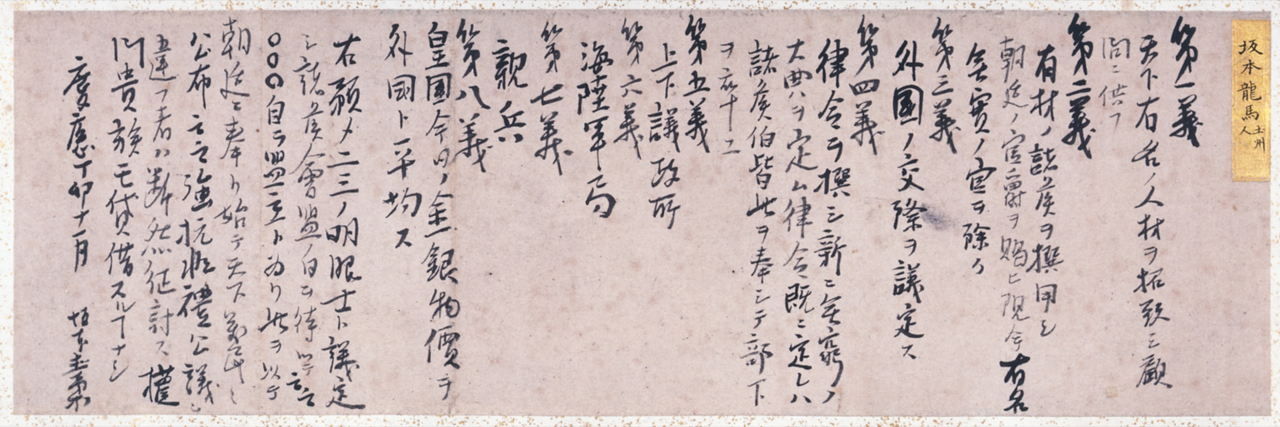 坂本龍馬 土州人
第一義
天下有名ノ人材ヲ招致シ顧
問ニ供フ
第二義
有材ノ諸侯ヲ撰用シ
朝廷ノ官爵ヲ賜ヒ現今有名
無實ノ官ヲ除ク
第三義
外國ノ交際ヲ議定ス
第四義
律令ヲ撰シ新ニ無窮ノ
大典ヲ定ム律令既ニ定レハ
諸侯伯皆此ヲ奉シテ部下
ヲ率ユ
第五義
上下議政所
第六義
海陸軍局
第七義
親兵
第八義
皇國今日ノ金銀物價ヲ
外國ト平均ス
右預メ二三ノ明眼士ト議定
シ諸侯會盟ノ日ヲ待ツテ云云
○○○自ラ盟主ト為リ此ヲ以テ
朝廷ニ奉リ始テ天下萬民ニ
公布云云強抗非禮公議ニ
違フ者ハ断然征討ス權
門貴族モ貸借スルヿナシ
慶應丁卯十一月 坂本直柔